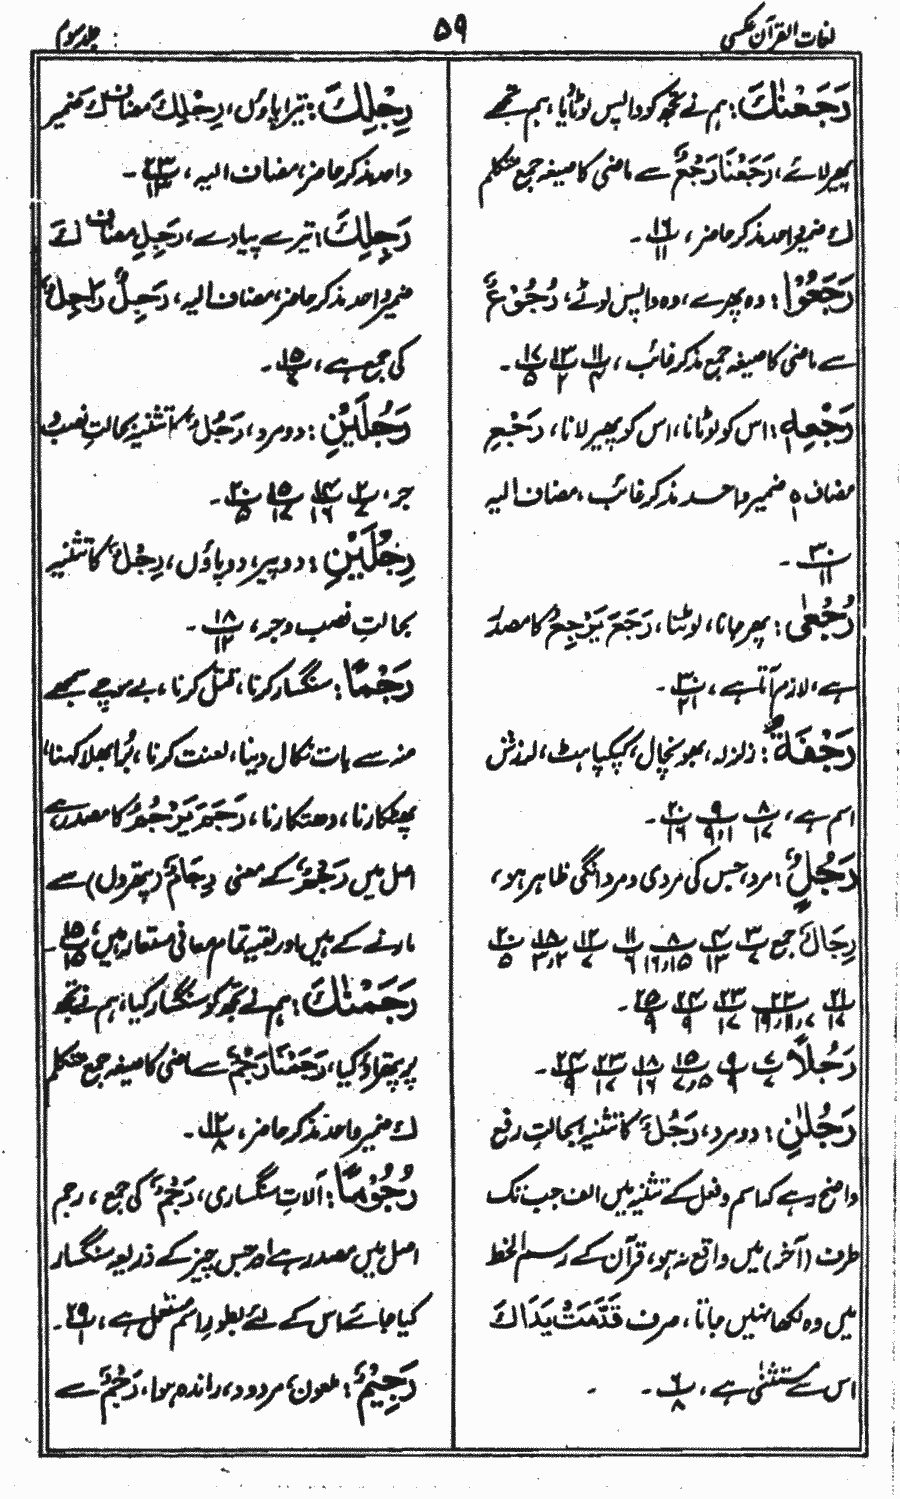 لغات القرآن عکسی
۵۹
جلد سوم
رَجَعْنٰكَ: ہم نے تجھ کو واپس لوٹایا، ہم تجھے
پھیر لائے، رَجَعْنَا رَجْعٌ سے ماضی کا صیغہ جمع متکلم
كَ ضمیر واحد مذکر حاضر، ۱۶/۱۱ ۔
رَجَعُوْا: وہ پھرے، وہ واپس لوٹے، رُجُوْعٌ
سے ماضی کا صیغہ جمع مذکر غائب، ۱۱/۴ ۱۳/۲ ۱۷/۵ ۔
رَجْعِهٖ: اس کو لوٹانا، اس کو پھیر لانا، رَجْعِ
مضاف ہٖ ضمیر واحد مذکر غائب، مضاف الیہ
۳۰/۱۱ ۔
رُجْعٰى: پھر جانا، لوٹنا، رَجَعَ يَرْجِعُ کا مصدر
ہے، لازم آتا ہے، ۳۰/۲۱ ۔
رَجْفَةٌ: زلزلہ، بھونچال، کپکپاہٹ، لرزش
اسم ہے، ۸/۱۷ ۹/۹،۱ ۲۰/۱۶ ۔
رَجُلٌ: مرد، جس کی مردی و مردانگی ظاہر ہو،
رِجَالٌ جمع ۳/۷ ۴/۱۳ ۸/۱۶،۱۵ ۱۱/۶ ۱۲/۷ ۱۸/۳،۲ ۲۰/۵
۲۱/۱۷ ۲۲/۱۹،۱۱،۷ ۲۳/۱۷ ۲۴/۹ ۲۵/۹ ۔
رَجُلًا ۷/۷ ۹/۹ ۱۵/۷،۵ ۱۸/۱۶ ۲۳/۱۷ ۲۴/۹ ۔
رَجُلٰنِ: دو مرد، رَجُلٌ کا تثنیہ بحالتِ رفع
واضح رہے کہ اسم و فعل کے تثنیہ میں الف جب تک
طرف (آخر) میں واقع نہ ہو، قرآن کے رسم الخط
میں وہ لکھا نہیں جاتا، صرف قَدَّمَتْ يَدَاكَ
اس سے مستثنیٰ ہے، ۶/۸ ۔
رِجْلِكَ: تیرا پاؤں، رِجْلِ مضاف كَ ضمیر
واحد مذکر حاضر، مضاف الیہ، ۲۳/۱۳ ۔
رَجِلِكَ: تیرے پیادے، رَجِلِ مضاف كَ
ضمیر واحد مذکر حاضر، مضاف الیہ، رَجِلٌ رَاجِلٌ
کی جمع ہے، ۱۵/۷ ۔
رَجُلَيْنِ: دو مرد، رَجُلٌ کا تثنیہ بحالتِ نصب و
جر، ۲/۷ ۱۴/۱۶ ۱۵/۱۷ ۲۰/۵ ۔
رِجْلَيْنِ: دو پیر، دو پاؤں، رِجْلٌ کا تثنیہ
بحالتِ نصب و جر، ۱۸/۱۲ ۔
رَجْمًا: سنگسار کرنا، قتل کرنا، بے سوچے سمجھے
منہ سے بات نکال دینا، لعنت کرنا، بُرا بھلا کہنا،
پھٹکارنا، دھتکارنا، رَجَمَ يَرْجُمُ کا مصدر ہے،
اصل میں رَجْمٌ کے معنی رِجَامٌ (پتھروں) سے
مارنے کے ہیں اور بقیہ تمام معانی مستعار ہیں، ۱۵/۱۵ ۔
رَجَمْنٰكَ: ہم نے تجھ کو سنگسار کیا، ہم نے تجھ
پر پتھراؤ کیا، رَجَمْنَا رَجْمٌ سے ماضی کا صیغہ جمع متکلم
كَ ضمیر واحد مذکر حاضر، ۱۲/۸ ۔
رُجُوْمًا: آلاتِ سنگساری، رَجْمٌ کی جمع، رجم
اصل میں مصدر ہے اور جس چیز کے ذریعہ سنگسار
کیا جائے اس کے لئے بطورِ اسم مستعمل ہے، ۲۹/۱ ۔
رَجِيْمٌ: ملعون، مردود، راندہ ہوا، رَجْمٌ سے